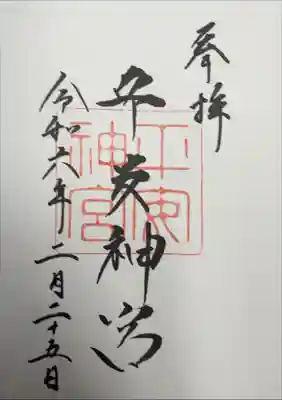 奉拝
平安神宮
平安神宮
令和六年二月二十五日